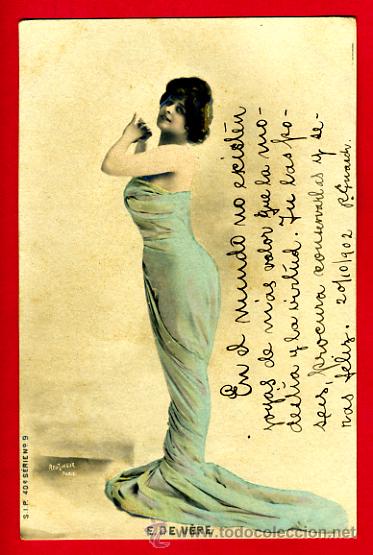 En el mundo no existen
joyas de más valor que la mo-
destia y la virtud. Tu las po-
seis, procura conservarlas y se-
rás feliz. 20/10/902 P. Guach.
S.I.P. 40e SERIE Nº 9
REUTLINGER
PARIS
E. DE VÈRE
www.todocoleccion.net